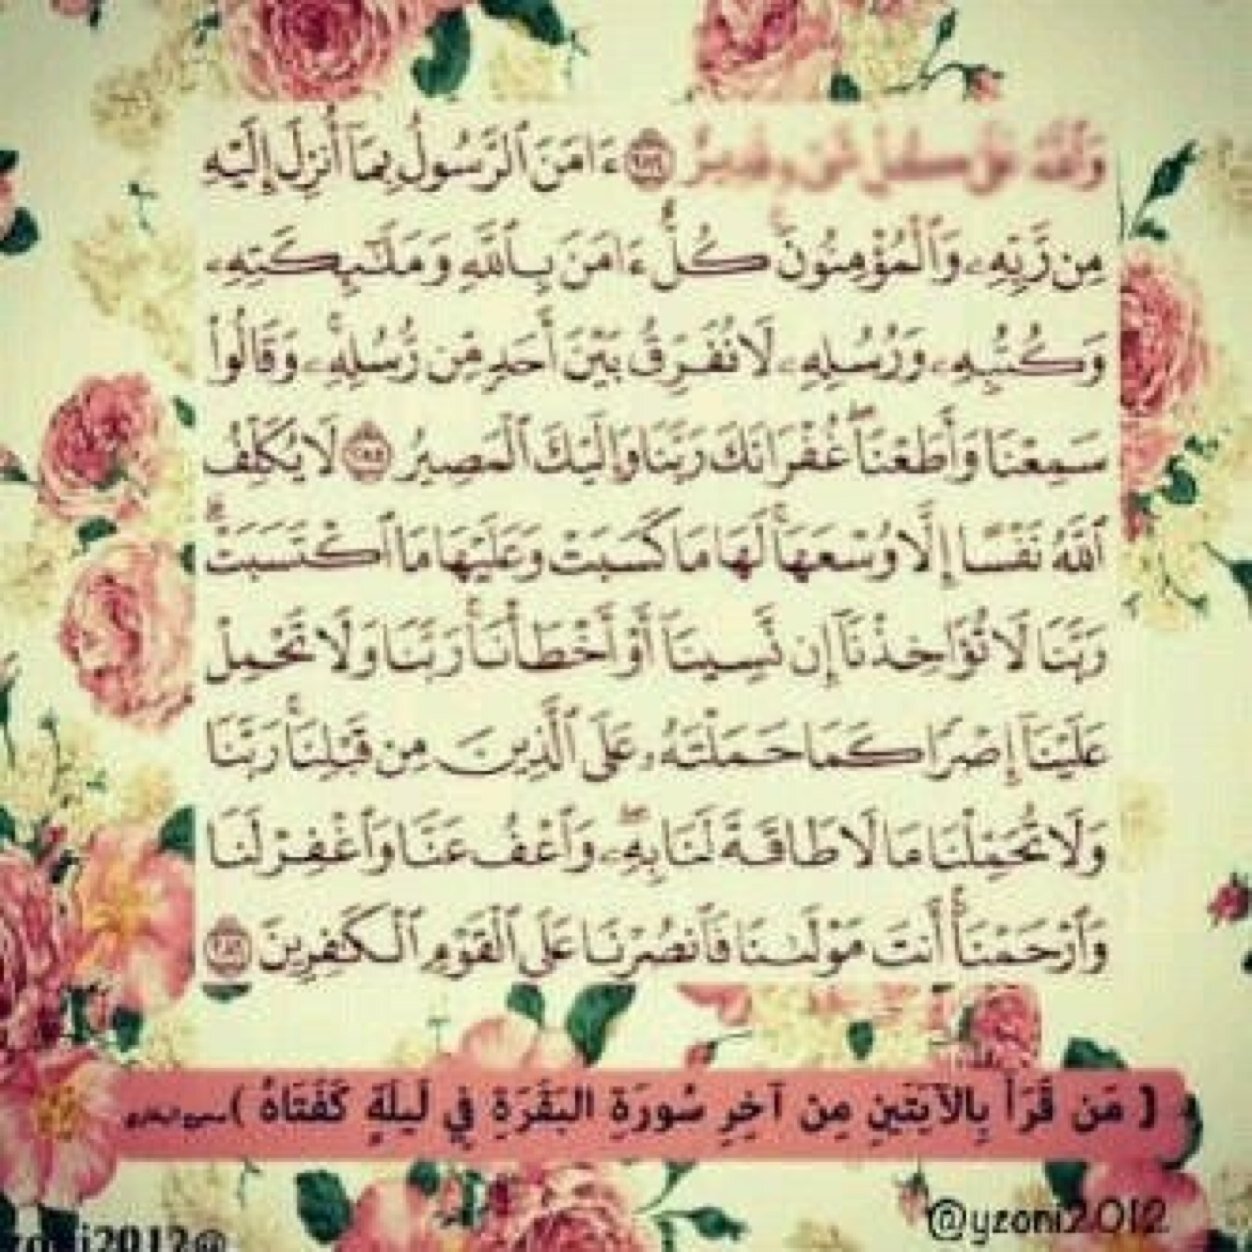 وَٱللَّهُ عَلَىٰ كُلِّ شَىْءٍ قَدِيرٌ ٢٨٤ ءَامَنَ ٱلرَّسُولُ بِمَآ أُنزِلَ إِلَيْهِ
مِن رَّبِّهِۦ وَٱلْمُؤْمِنُونَ ۚ كُلٌّ ءَامَنَ بِٱللَّهِ وَمَلَـٰٓئِكَتِهِۦ
وَكُتُبِهِۦ وَرُسُلِهِۦ لَا نُفَرِّقُ بَيْنَ أَحَدٍ مِّن رُّسُلِهِۦ ۚ وَقَالُوا۟
سَمِعْنَا وَأَطَعْنَا ۖ غُفْرَانَكَ رَبَّنَا وَإِلَيْكَ ٱلْمَصِيرُ ٢٨٥ لَا يُكَلِّفُ
ٱللَّهُ نَفْسًا إِلَّا وُسْعَهَا ۚ لَهَا مَا كَسَبَتْ وَعَلَيْهَا مَا ٱكْتَسَبَتْ ۗ
رَبَّنَا لَا تُؤَاخِذْنَآ إِن نَّسِينَآ أَوْ أَخْطَأْنَا ۚ رَبَّنَا وَلَا تَحْمِلْ
عَلَيْنَآ إِصْرًا كَمَا حَمَلْتَهُۥ عَلَى ٱلَّذِينَ مِن قَبْلِنَا ۚ رَبَّنَا
وَلَا تُحَمِّلْنَا مَا لَا طَاقَةَ لَنَا بِهِۦ ۖ وَٱعْفُ عَنَّا وَٱغْفِرْ لَنَا
وَٱرْحَمْنَآ ۚ أَنتَ مَوْلَىٰنَا فَٱنصُرْنَا عَلَى ٱلْقَوْمِ ٱلْكَـٰفِرِينَ ٢٨٦
( مَن قَرَأَ بِالآيَتَينِ مِن آخِرِ سُورَةِ البَقَرَةِ فِي لَيلَةٍ كَفَتَاهُ ) صحيح البخاري
@yzoni2012
zoni2012@